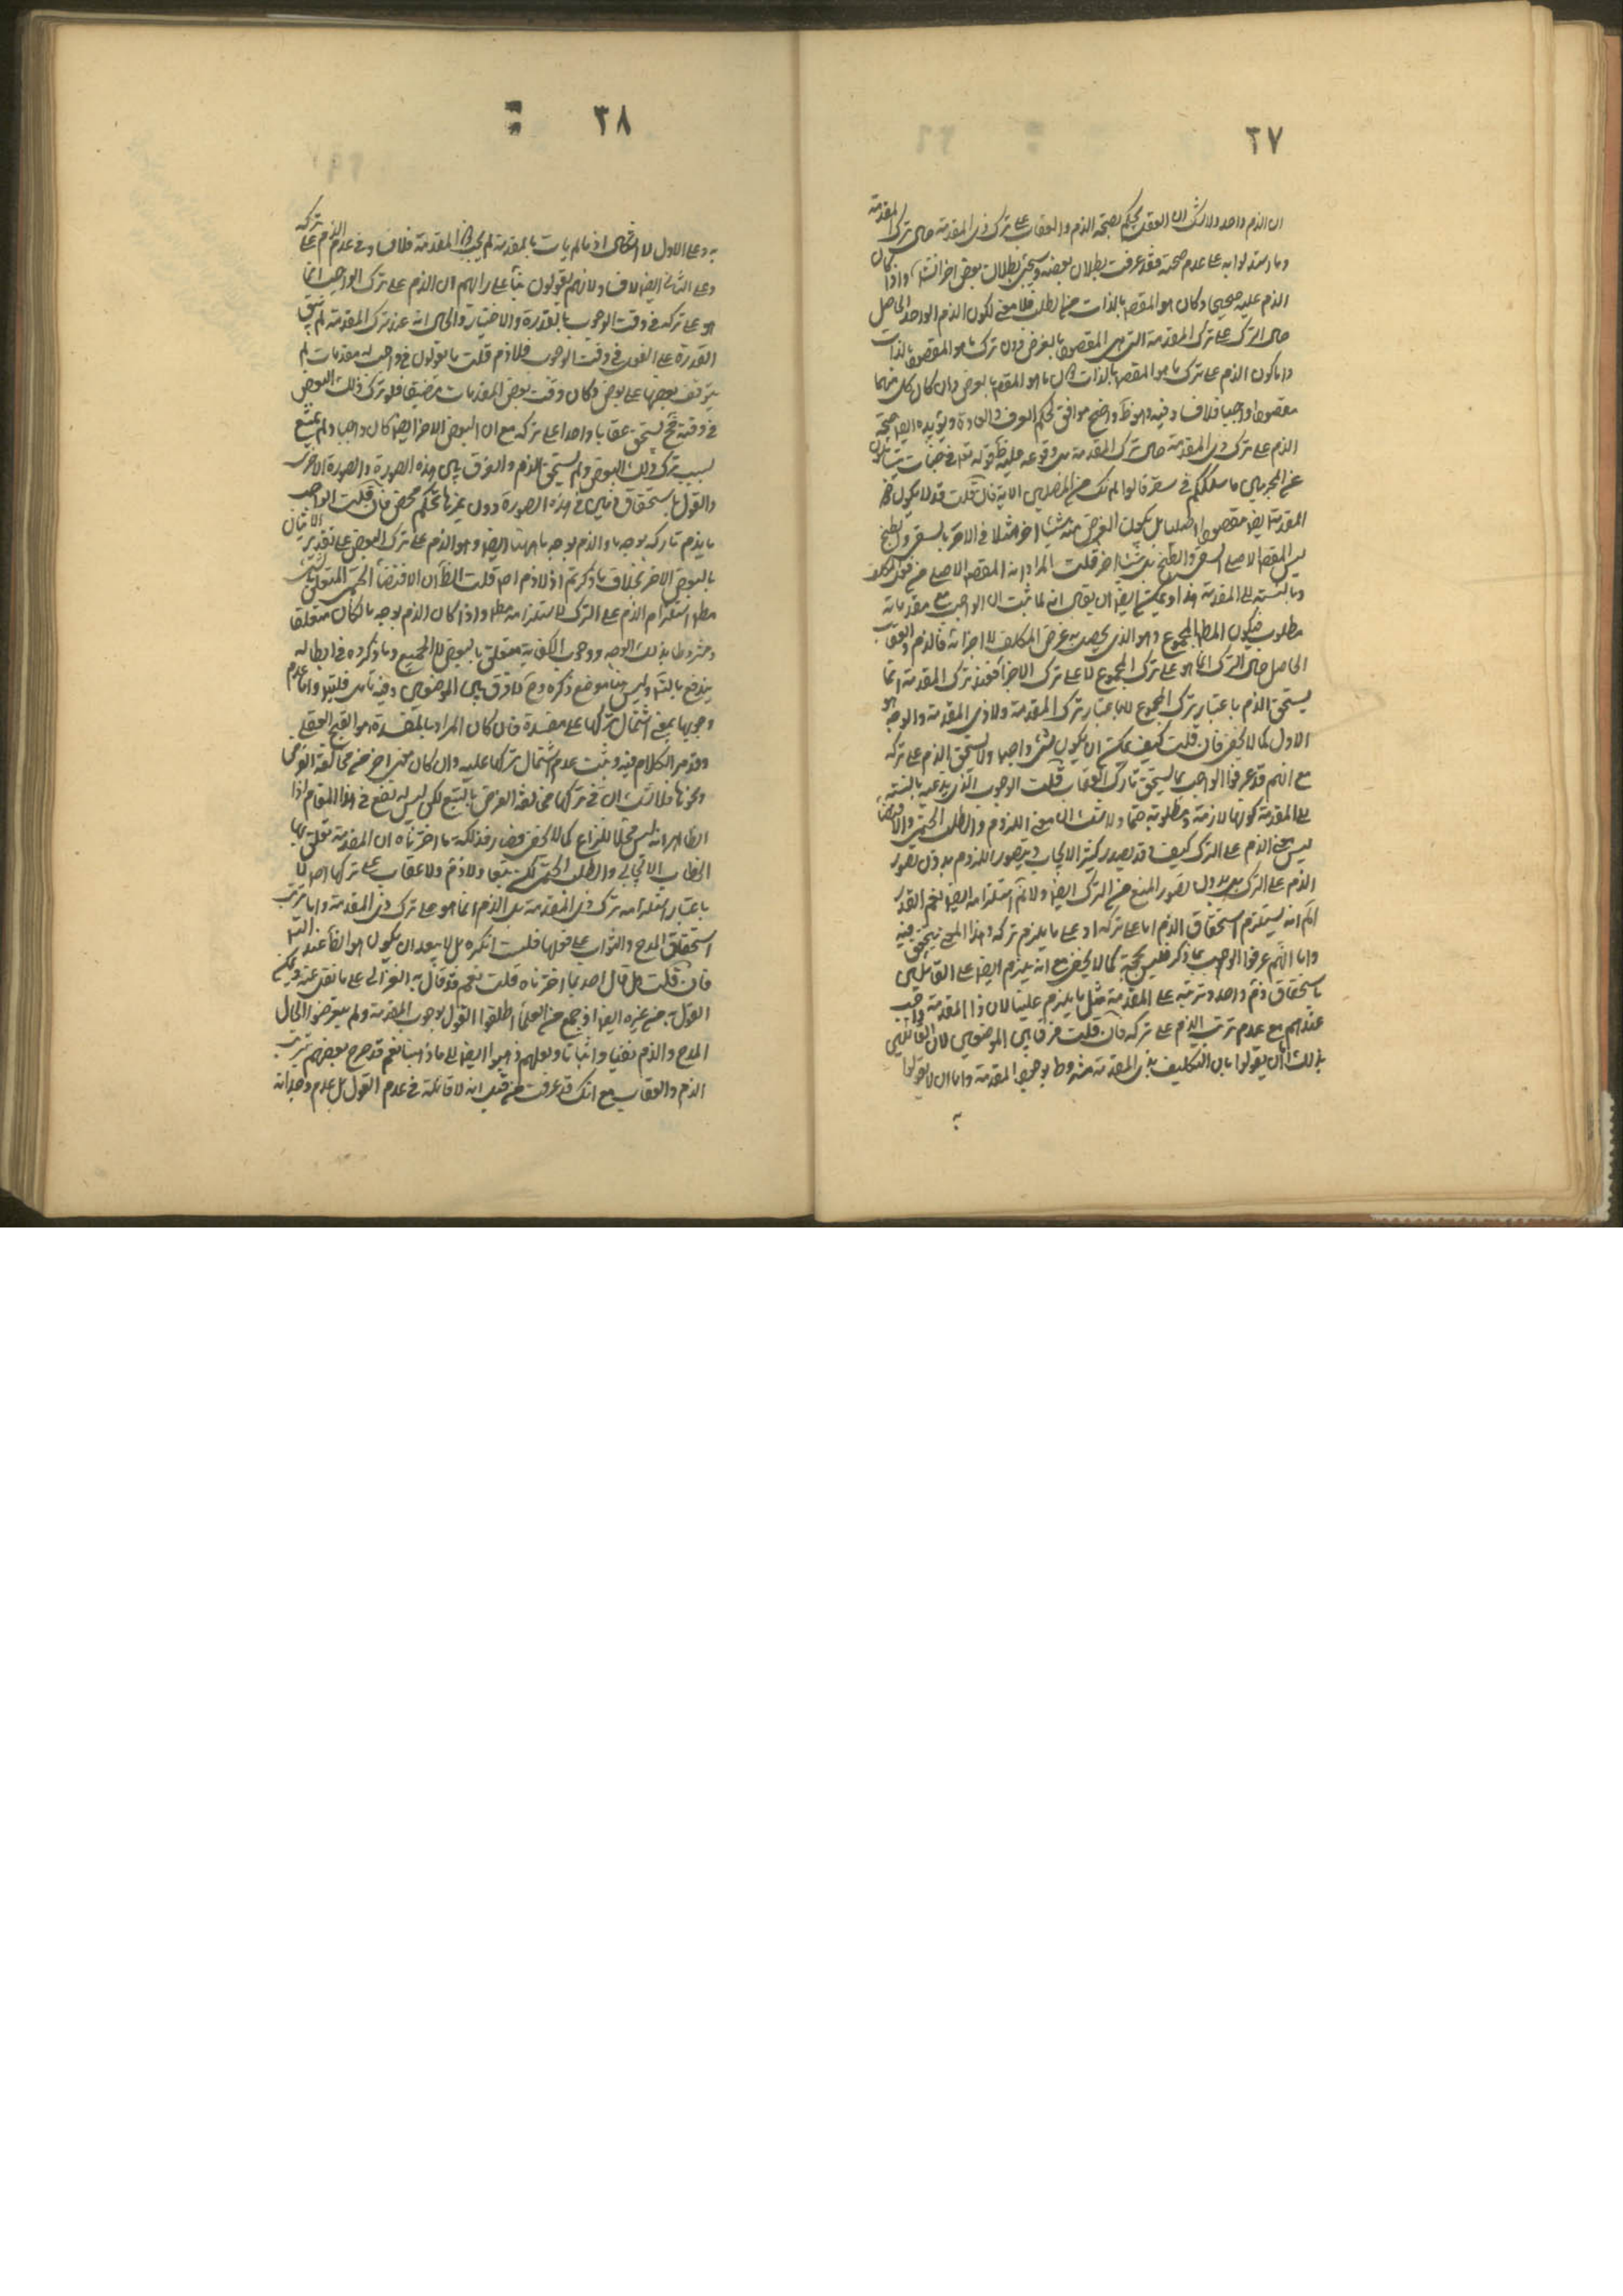 ٣٧
ان الذم واحد ولا شك ان العقل يحكم بصحة الذم والعقاب على ترك ذى المقدمة حال ترك المقدمة
وما استدلوا به على عدم صحته فقد عرفت بطلان بعضه وسيجئ بطلان بعض اخر انش واذا كان
الذم عليه صحيحا وكان هو المقص بالذات من الطلب فلا معنى لكون الذم الواحد الحاصل
حال الترك على ترك المقدمة التى هى المقصود بالعرض دون ترك ما هو المقصود بالذات
واما كون الذم على ترك ما هو المقص بالذات ما هو المقص بالعرض وان كان كل منهما
مقصودا واجبا فلا فساد فيه وهو ظ واضح موافق لحكم العرف والعادة ويؤيده ايض صحة
الذم على ترك ذى المقدمة حال ترك المقدمة بل وقوعه عليه ظ قوله تع فى جنات يتسائلون
عن المجرمين ما سلككم فى سقر قالوا لم نك من المصلين الاية فان قلت قد لا يكون ذو
المقدمة ايض مقصودا اصليا بل يكون الغرض منه شيئا اخر مثلا فى الامر بالسقى والطبخ
ليس المقص الاصلى السقى والطبخ بل شئ اخر قلت المراد انه المقص الاصلى من المكلف
وبالنسبة الى المقدمة هذا ويمكن ايض ان يقال انه لما ثبت ان الواجب مع مقدماته
مطلوب فيكون المط المجموع وهو الذى يحصل به غرض المكلف لا اجزائه فالذم والعقاب
الحاصل حال الترك انما هو على ترك المجموع لا على ترك الاجزاء فعند ترك المقدمة انما
يستحق الذم باعتبار ترك المجموع لا باعتبار ترك المقدمة ولا ذى المقدمة والوجه هو
الاول كما لا يخفى فان قلت كيف يمكن ان يكون شئ واجبا ولا يستحق الذم على تركه
مع انهم قد عرفوا الواجب بما يستحق تاركه العقاب قلت الوجوب الذى يدعيه بالنسبة
الى المقدمة كونها لازمة ومطلوبة حتما ولا شك ان معنى اللزوم والطلب الحتمى والاقتضاء
ليس معنى الذم على الترك كيف وقد يصدر كثيرا الايجاب ويتصور اللزوم بدون تصور
الذم على الترك بل بدون تصور المنع من الترك ايض ولا نم استلزامه ايض نعم القدر
المسلم انه يستلزم استحقاق الذم اما على تركه او على ما يلزم تركه وهذا المعنى يتحقق فيه
واما انهم عرفوا الوجوب بما ذكر فليس بحجة كما لا يخفى مع انه يلزم ايض على القائلين
باستحقاق ذم واحد وترتبه على المقدمة مثل ما يلزم علينا لان ذا المقدمة واجب
عندهم مع عدم ترتب الذم على تركه فان قلت فرق بين الموضعين لان القائلين
بذلك اما ان يقولوا بان التكليف بذى المقدمة مشروط بوجود المقدمة واما ان لا يقولوا
به
٣٨
به وعلى الاول لا اشكال اذ ما لم يات بالمقدمة لم يجب ذو المقدمة فلا فساد فى عدم الذم على تركه
وعلى الثانى ايض لا فساد لانهم يقولون بناء على رايهم ان الذم على ترك الواجب انما
هو على تركه فى وقت الوجوب بالقدرة والاختيار والحال انه عند ترك المقدمة لم يبق
القدرة على الفعل فى وقت الوجوب فلا ذم قلت ما يقولون فى واجب له مقدمات لم
يتوقف بعضها على بعض وكان وقت بعض المقدمات مضيقا فلو ترك ذلك البعض
فى وقته فح يستحق عقابا واحدا على تركه مع ان البعض الاخر ايض كان واجبا ولم يمتنع
بسبب ترك ذلك البعض ولم يستحق الذم والفرق بين هذه الصورة والصورة الاخرى
والقول باستحقاق ذمين فى هذه الصورة دون غيرها تحكم محض فان قلت الواجب
ما يذم تاركه بوجه ما والذم بوجه ما ههنا ايض وهو الذم على ترك البعض على تقدير الاتيان
بالبعض الاخر بخلاف ما ذكرتم اذ لا ذم اصلا قلت الظ ان الاقتضاء الحتمى المتعلق بشئ
مطلقا استلزام الذم على الترك لاستلزامه مطلقا واذا كان الذم بوجه ما لكان متعلقا
ومشروطا بذلك الوجه ووجوب الكفاية متعلق بالبعض لا الجميع وما ذكروه فى ابطاله
يندفع بالتامل وليس هنا موضع ذكره وح لا فرق بين الموضعين وفيه تامل فليتدبر واما عدم
وجوبها بمعنى اشتمال تركها على مفسدة فان كان المراد بالمفسدة هو القبح العقلى
وقد مر الكلام فيه وثبت عدم اشتمال تركها عليه وان كان معنى اخر من مخالفة الغرض
ونحوها فلا شك ان فى تركها مخالفة الغرض بالتبع لكن ليس له نفع فى هذا المقام اذ
الظاهر انه ليس محلا للنزاع كما لا يخفى فصار فذلكة ما اخترناه ان المقدمة تعلق بها
الخطاب الايجابى والطلب الحتمى لكن تبعا ولا ذم ولا عقاب على تركها اصلا لا
باعتبار استلزامه ترك ذى المقدمة بل الذم انما هو على ترك ذى المقدمة واما ترتب
استحقاق المدح والثواب على فعلها فلست انكره بل لا يبعد ان يكون هو الظ عند التامل
فان قلت هل قال احد بما اخترناه قلت نعم قد قال به الغزالى على ما نقل عنه ويمكن
القول به من غيره ايض اذ جمع من العلماء اطلقوا القول بوجوب المقدمة ولم يتعرضوا لحال
المدح والذم نفيا واثباتا ولعلهم ذهبوا ايض الى ما ذهبنا نعم قد صرح بعضهم بترتب
الذم والعقاب مع انك قد عرفت من قبل انه لا قائمة فى عدم القول بل بعدم وجدانه